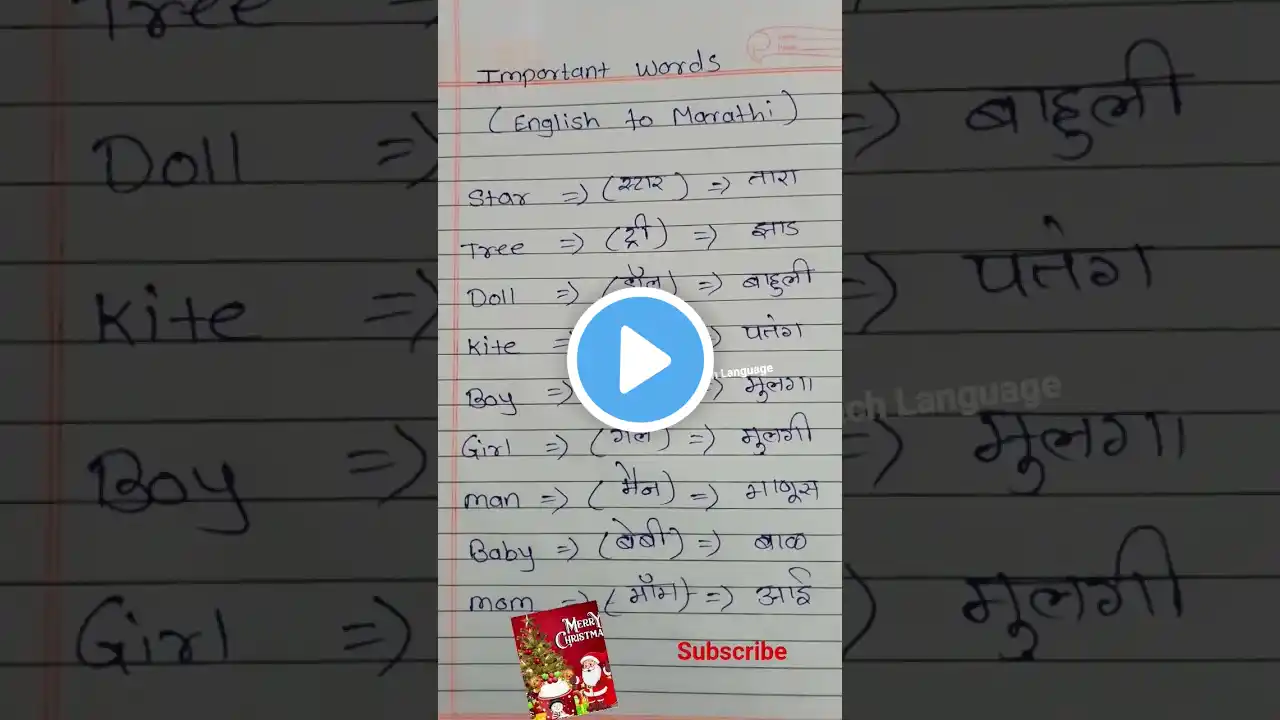 Important Words
(English to Marathi)
Star => (स्टार) => तारा
Tree => (ट्री) => झाड
Doll => (डॉल) => बाहुली
Kite => पतंग
Boy => => मुलगा
Girl => (गर्ल) => मुलगी
man => (मैन) => माणूस
Baby => (बेबी) => बाळ
mom => (मॉम) => आई
MERRY
CHRISTMA
Subscribe
Language
Tree
Doll =>
Kite =>
Boy =>
Girl =>
=> बाहुली
=> पतंग
ch Language
=> मुलगा
मुलगी